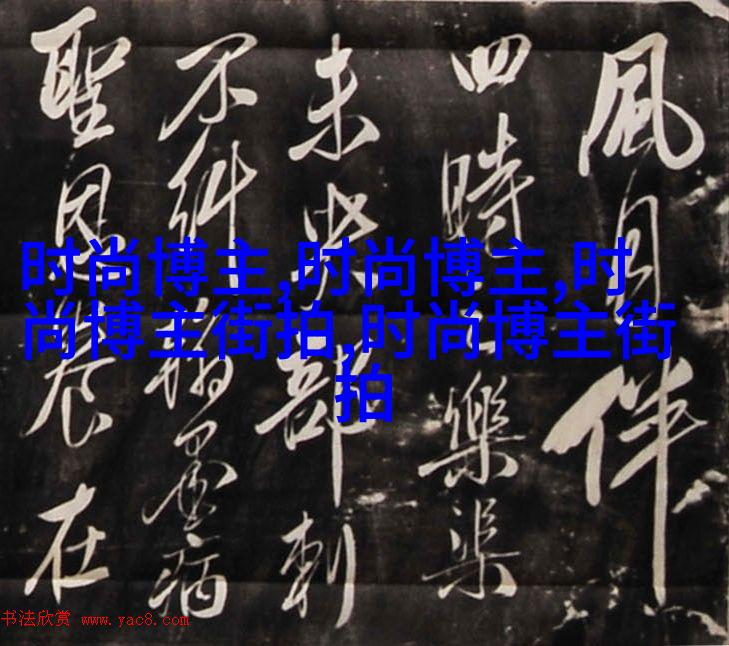 風月伴
四時樂渠
未央部刺
不糾墨病
聖恩在
时尚博主,时尚博主,时
尚博主街拍,时尚博主街
拍
书法欣赏 www.yac8.com